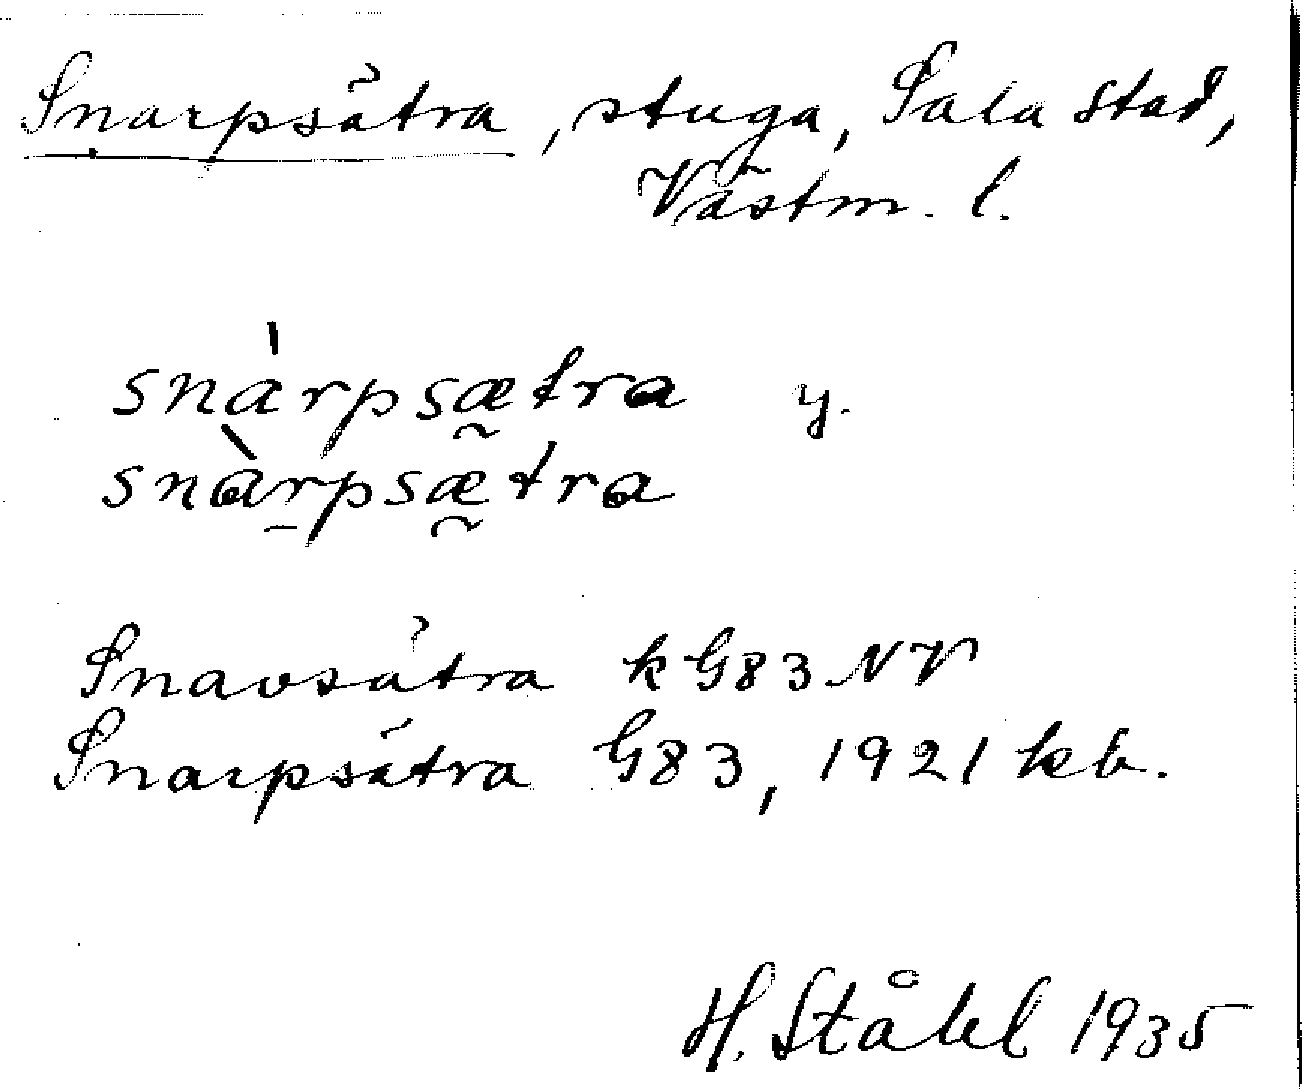 Snarpsätra, stuga, Sala stad,
Västm. l.
snàrpsæ̰tra y.
snàr̠psæ̰tra
Snavsätra k G83 NV
Snarpsätra G83, 1921 kb.
H. Ståhl 1935